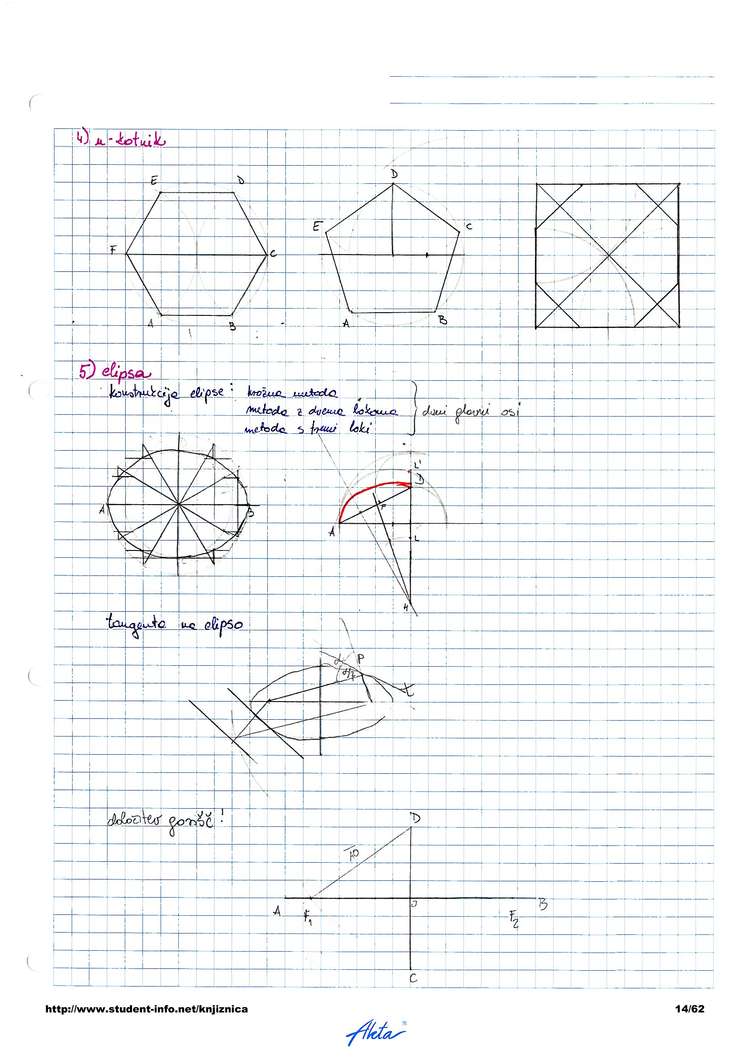 4) n-kotnik
E D
F C
A B
D
E C
A B
5) elipsa
konstrukcija elipse: krožna metoda
metoda z dvema lokoma } dani glavni osi
metoda s tremi loki
A B
L'
D
P
A
L
H
tangenta na elipso
P
t
določitev gorišč!
D
A F₁ O F₂ B
C
http://www.student-info.net/knjiznica 14/62
Aketa